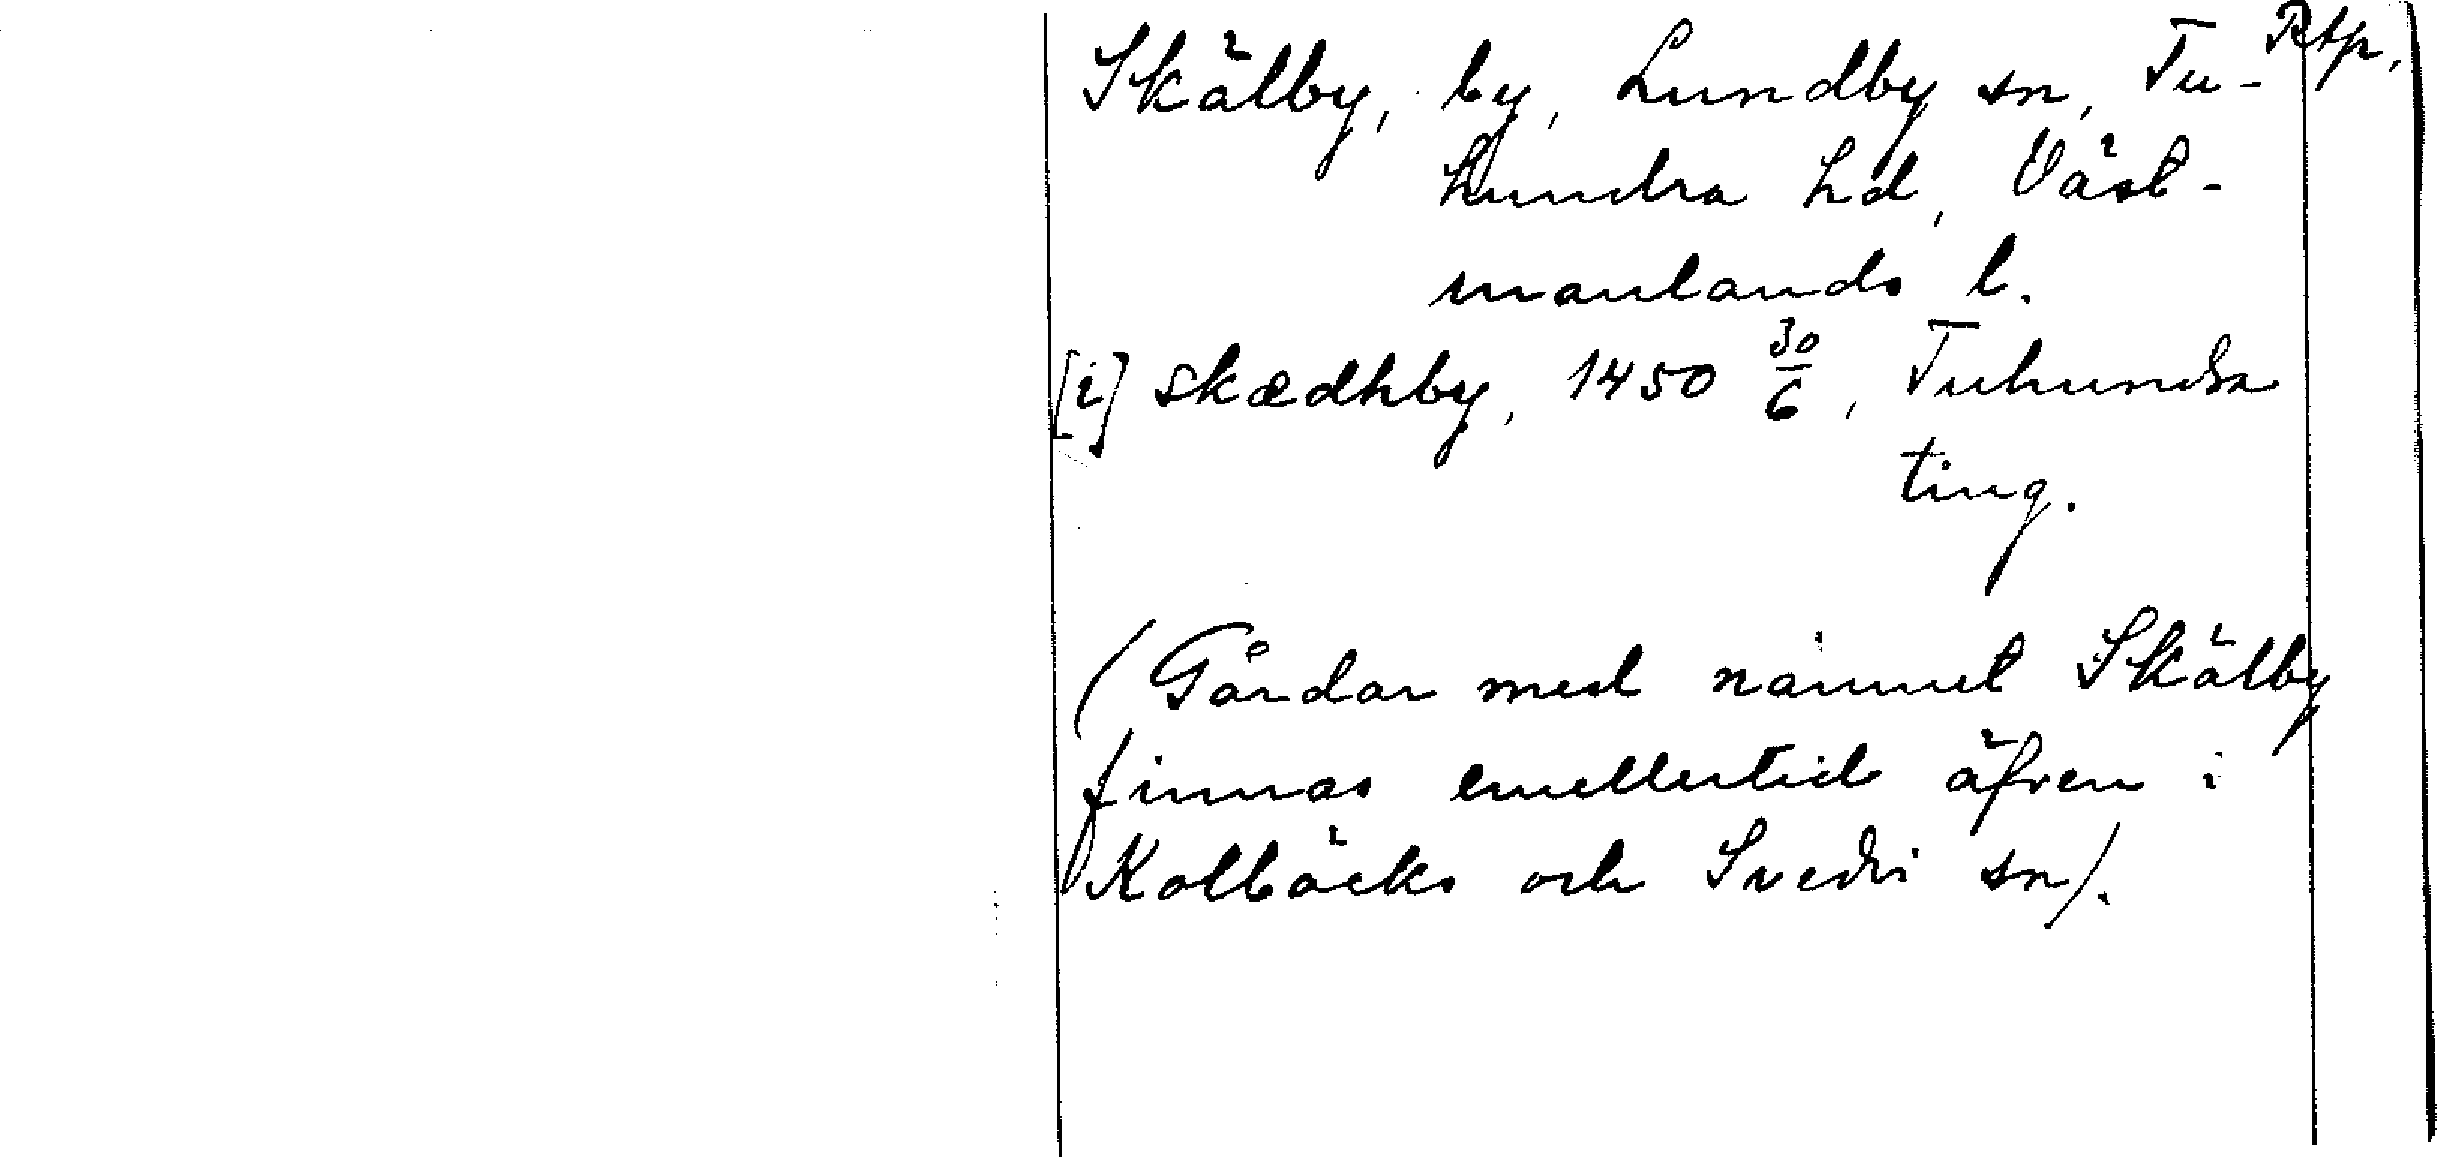 Skälby, by, Lundby sn, Tu- Rtp.
hundra hd, Väst-
manlands l.
[i] skædhby, 1450 30/6, Tuhundra
ting.
(Gårdar med namnet Skälby
finnas emellertid äfven i
Kolbäcks och Svedvi sn).